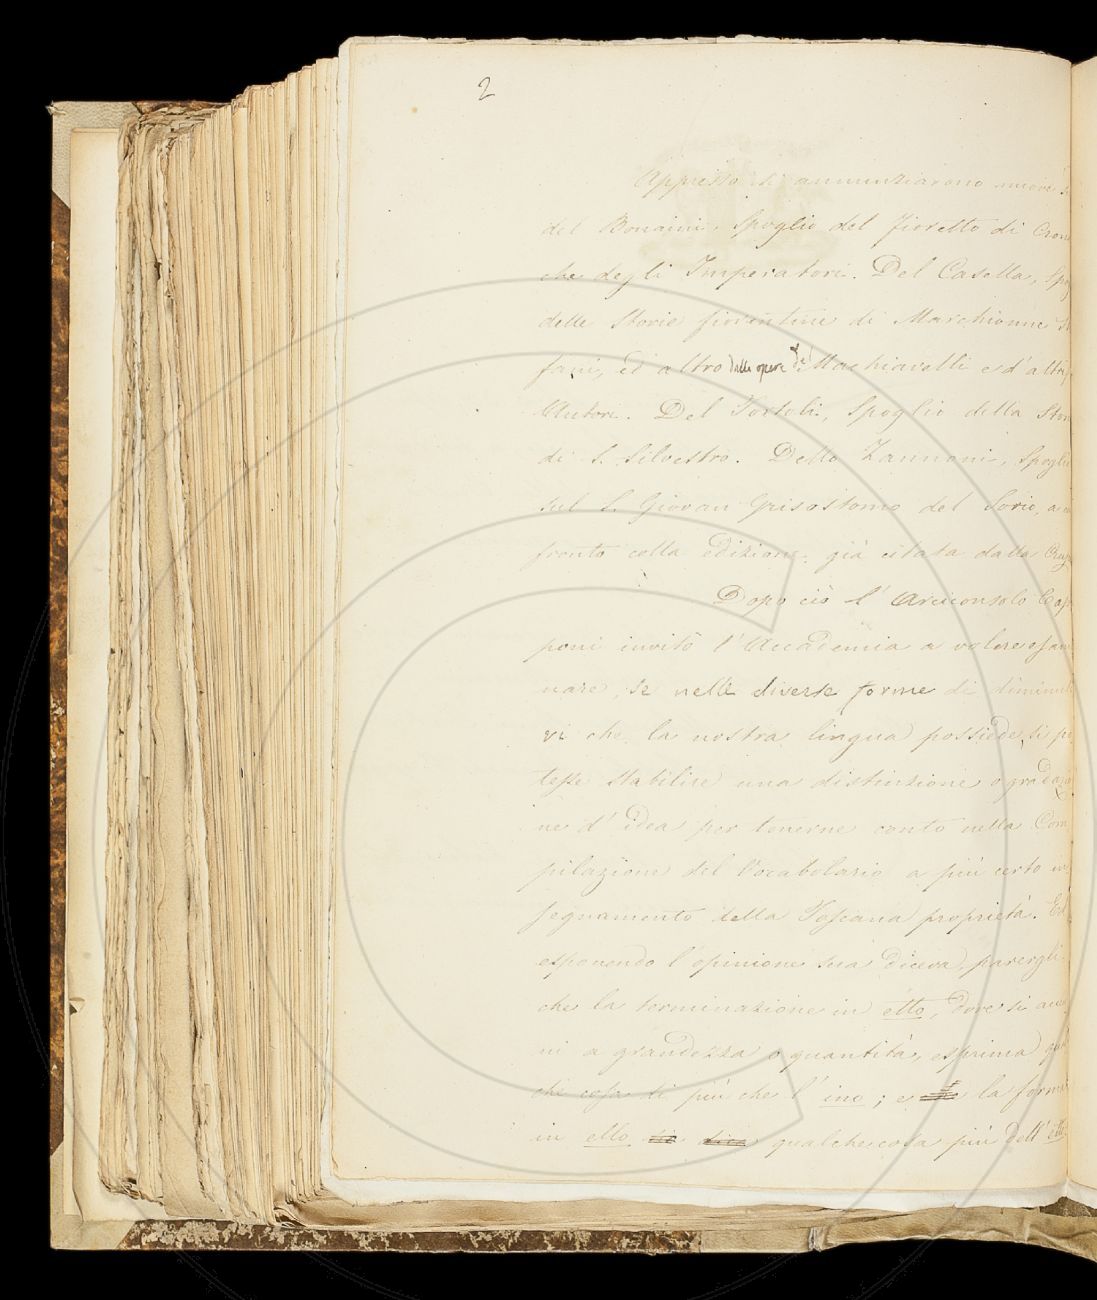 2
Appresso si annunziarono nuovi
del Bonaini, Spoglio del Fioretto di Cron
che degli Imperatori. Del Casella, Spo
delle Storie fiorentine di Marchionne
fani, ed altro dalle opere del Machiavelli e d'altri
Autori. Del Tortoli, Spoglio della Stor
di S. Silvestro. Dello Zannoni, Spogli
sul S. Giovan Grisostomo del Sorio, a
fronto colla edizione già citata dalla Cru
Dopo ciò l'Arciconsolo Cap
poni invitò l'Accademia a volere esam
nare, se nelle diverse forme di diminuti
vi che la nostra lingua possiede, si po
tesse stabilire una distinzione o gradazio
ne d'idea per tenerne conto nella Com
pilazione del Vocabolario a più certo in
segnamento della Toscana proprietà. Ed
esponendo l'opinione sua diceva, parergli
che la terminazione in etto, dove si acce
ni a grandezza o quantità, esprima qual
che cosa di più che l'ino; e la forma
in ello qualche cosa più dell'etto